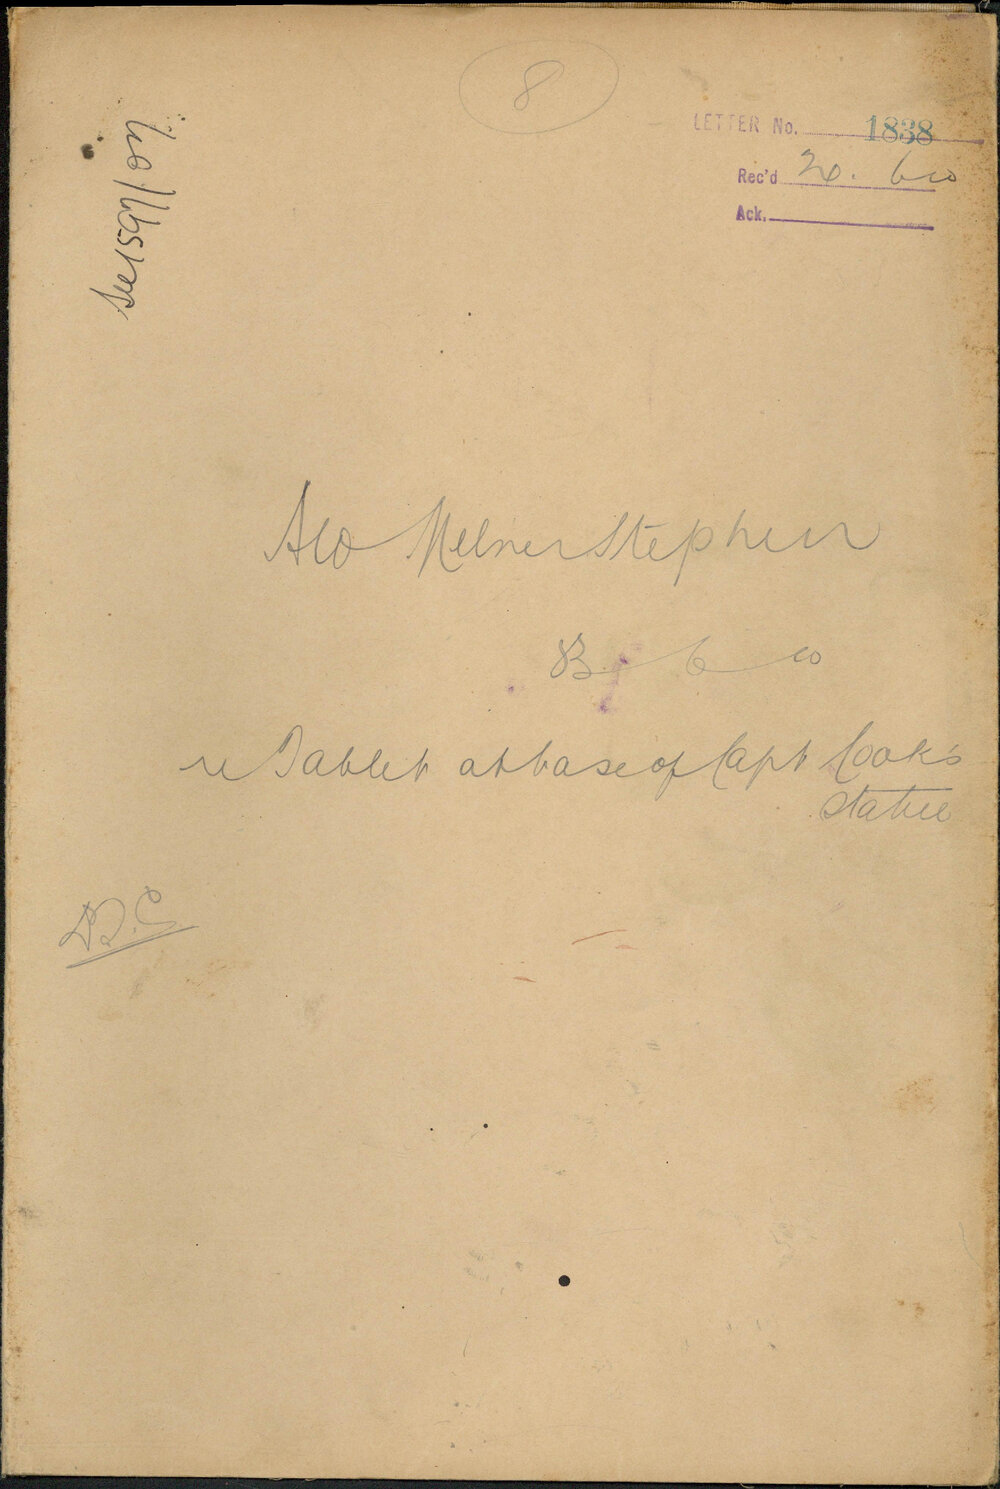 8
LETTER No. 1838
Rec'd 20. 6 10
Ack.
See 1597/07
Ald Milner Stephen
8 6 10
re Tablet at base of Capt Cook's
statue